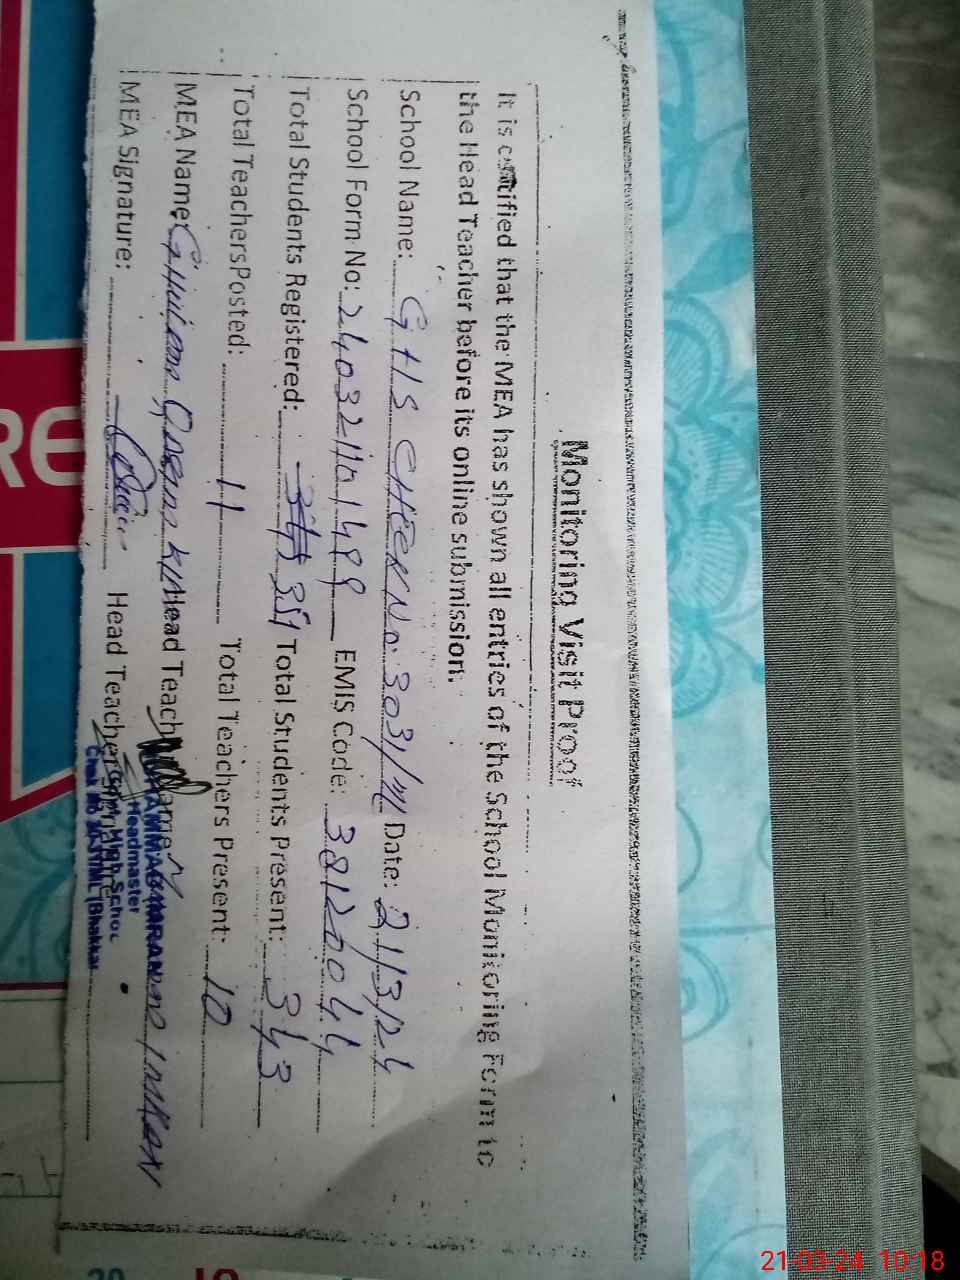 Monitoring Visit Proof
It is certified that the MEA has shown all entries of the School Monitoring Form to
the Head Teacher before its online submission:
School Name: GHS CHAK No. 303/ML Date: 21/3/24
School Form No: 24032110148 EMIS Code: 38120044
Total Students Registered: 351 Total Students Present: 343
Total TeachersPosted: 11 Total Teachers Present: 10
MEA Name: Head Teacher Name
MEA Signature: Head Teacher Signature
MUHAMMAD IMRAN
Headmaster
Govt. High School
(Bhakkar
RE
21-03-24 10:18